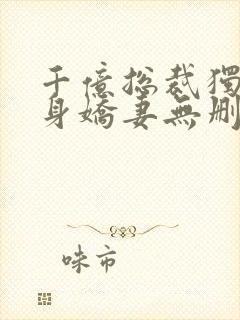 千億総裁獨
身嬌妻無刪
味市